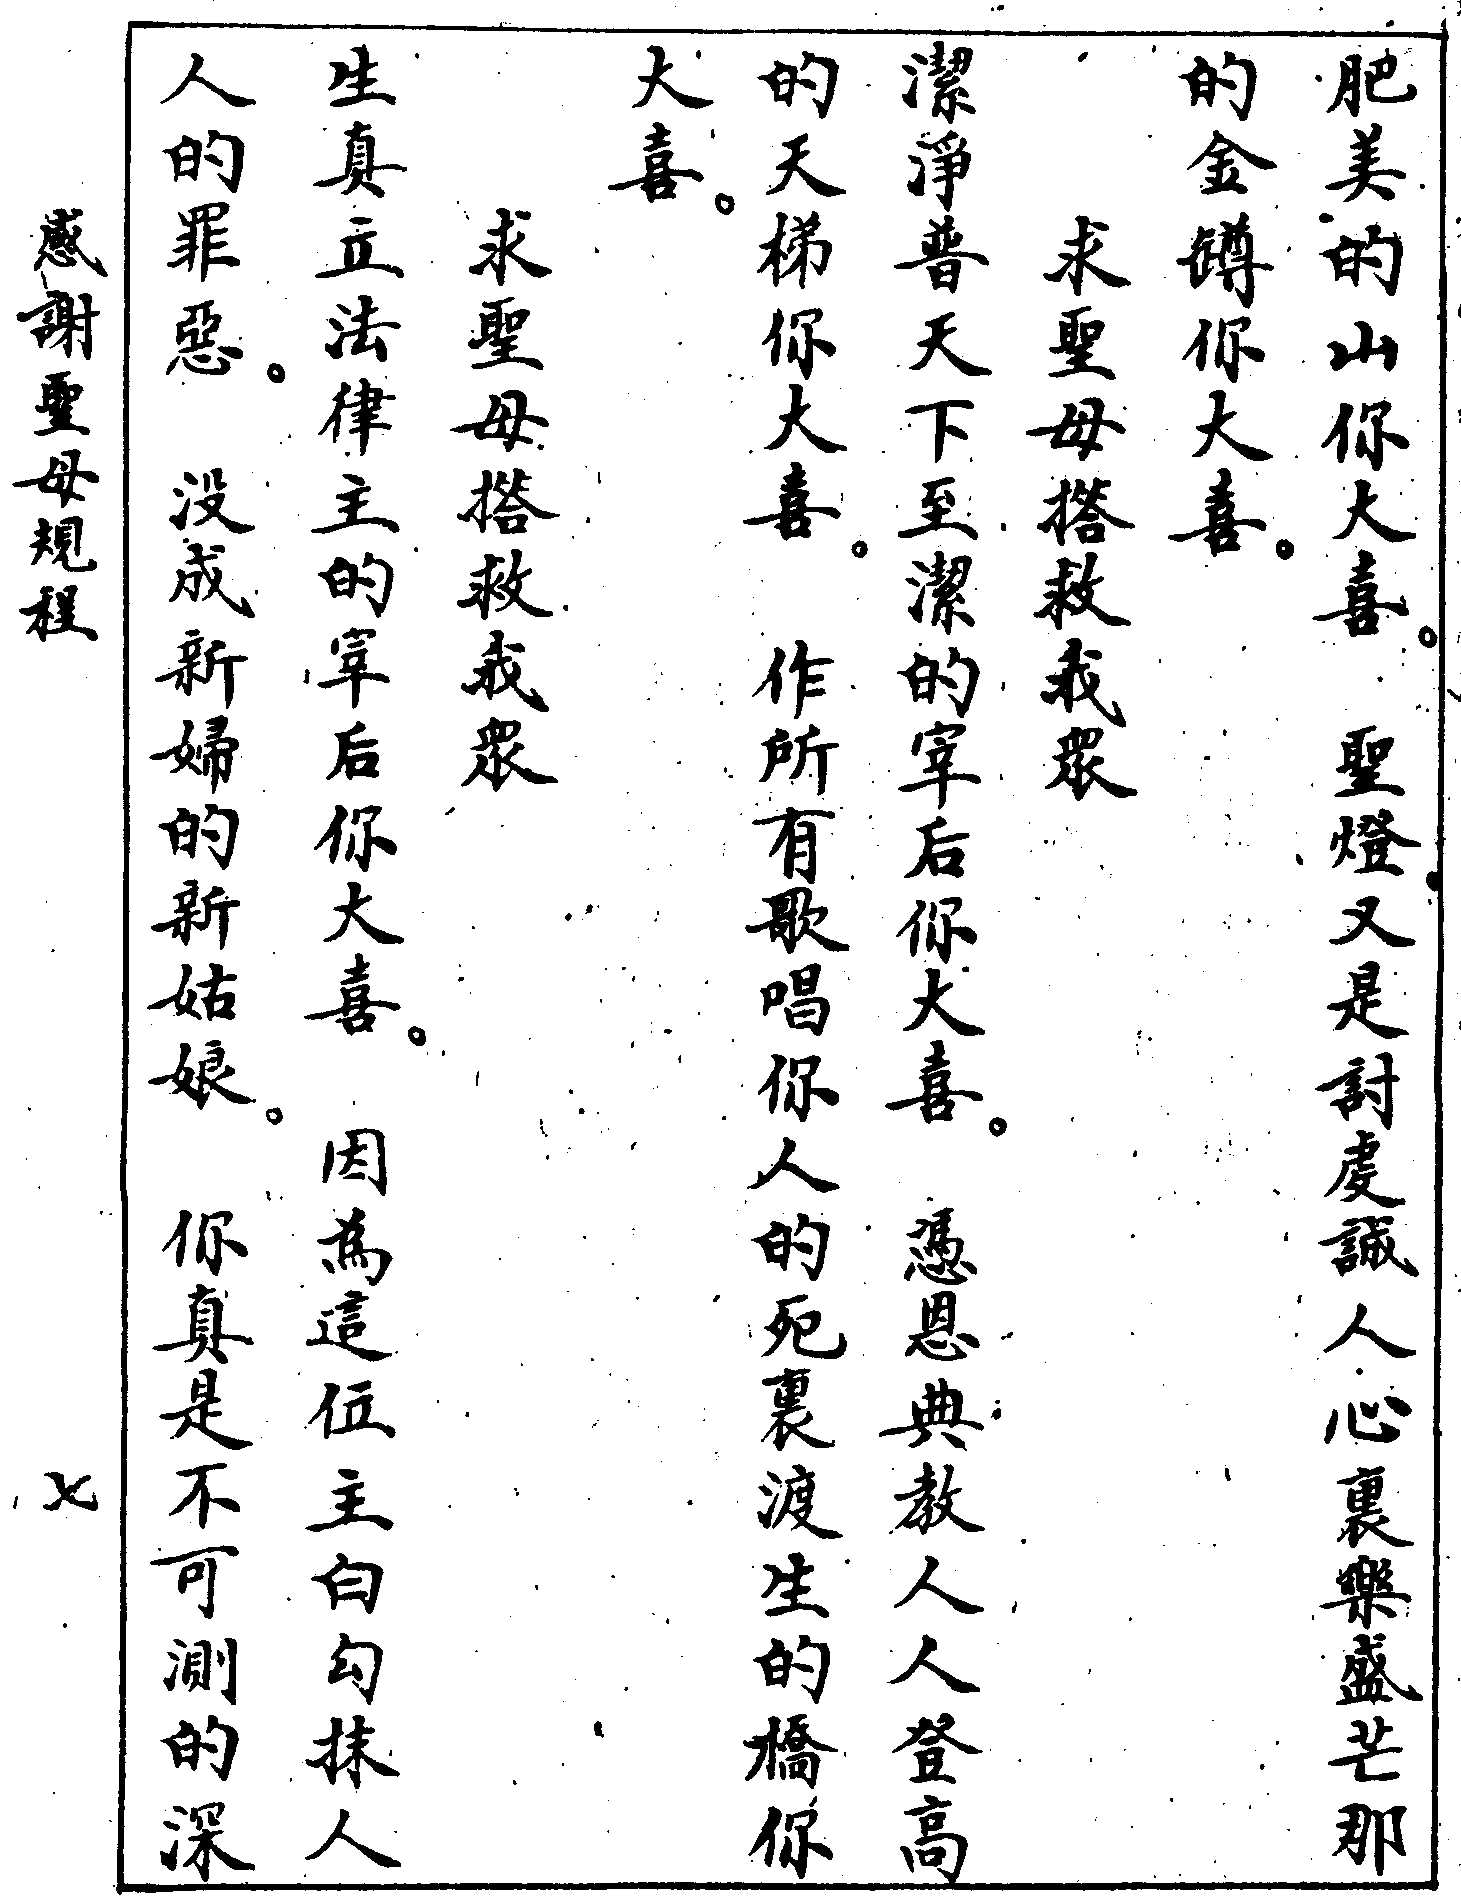 肥美的山你大喜。　聖燈又是討虔誠人心裏樂盛芒那
的金罇你大喜。
求聖母撘救我眾
潔淨普天下至潔的宰后你大喜。　憑恩典教人人登高
的天梯你大喜。　作所有歌唱你人的死裏渡生的橋你
大喜。
求聖母撘救我眾
生真立法律主的宰后你大喜。　因為這位主白勾抹人
人的罪惡。　没成新婦的新姑娘。　你真是不可測的深
感謝聖母規程　七